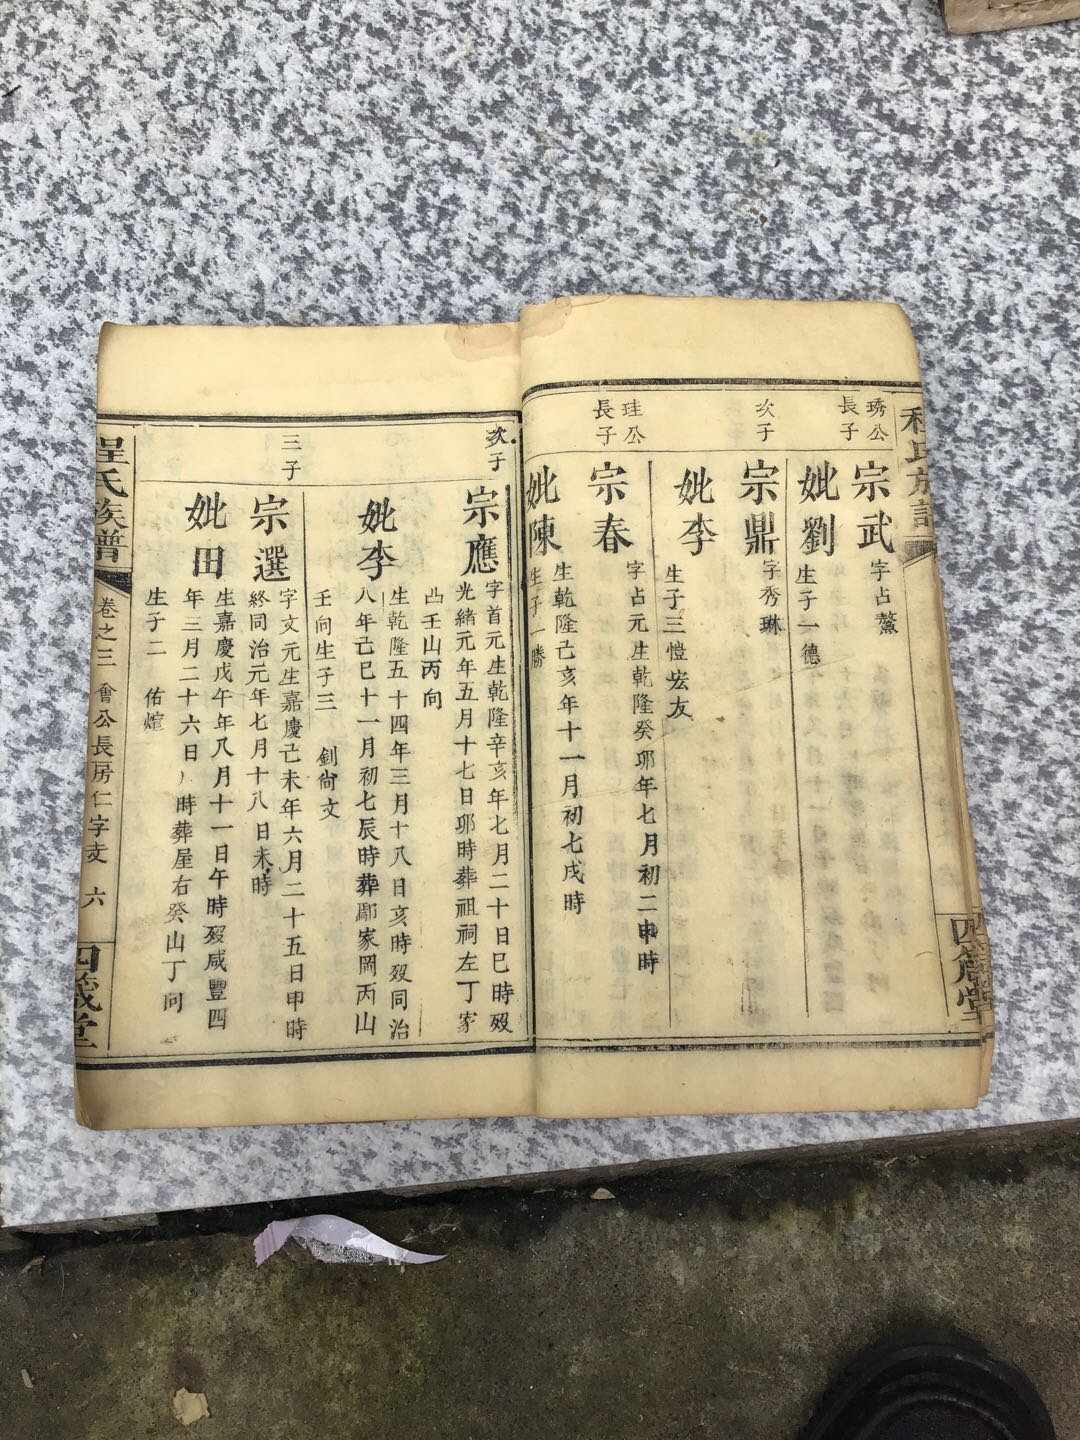 程氏族譜
四箴堂
琇公
長子
宗武
字占鰲
妣劉
生子一德
次子
宗鼎
字秀琳
妣李
生子三愷宏友
珪公
長子
宗春
字占元生乾隆癸夘年七月初二申時
妣陳
生乾隆己亥年十一月初七戌時
生子一勝
次子
宗應
字首元生乾隆辛亥年七月二十日巳時歿
光緒元年五月十七日夘時葬祖祠左丁家
凸壬山丙向
妣李
生乾隆五十四年三月十八日亥時歿同治
八年己巳十一月初七辰時葬鄢家岡丙山
壬向生子三 釗尙文
三子
宗選
字文元生嘉慶己未年六月二十五日申時
終同治元年七月十八日未時
妣田
生嘉慶戊午年八月十一日午時歿咸豐四
年三月二十六日 時葬屋右癸山丁向
生子二 佑煊
程氏族譜
卷之三 會公長房仁字支 六
四箴堂